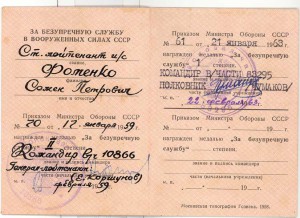 ЗА БЕЗУПРЕЧНУЮ СЛУЖБУ
В ВООРУЖЕННЫХ СИЛАХ СССР
Ст. лейтенант
звание
Фоменко
фамилия
Петрович
имя и отчество
Приказом Министра Обороны СССР
№ 70 от 12 января 1959 г.
награжден медалью „За безупречную
службу"
II степени.
Командир в/ч 10866
Генерал-лейтенант
(Е. Коршунов)
февраля 59
Приказом Министра Обороны СССР
№ 61 от 21 января 1963 г.
награжден медалью „За безупречную
службу" I степени.
КОМАНДИР В/ЧАСТИ 83295
ПОЛКОВНИК
звание и подпись командира
22 февраля 63 г.
Приказом Министра Обороны СССР
№ от 19 г.
награжден медалью „За безупречную
службу" степени.
звание и подпись командира
Московская типография Гознака. 1958.